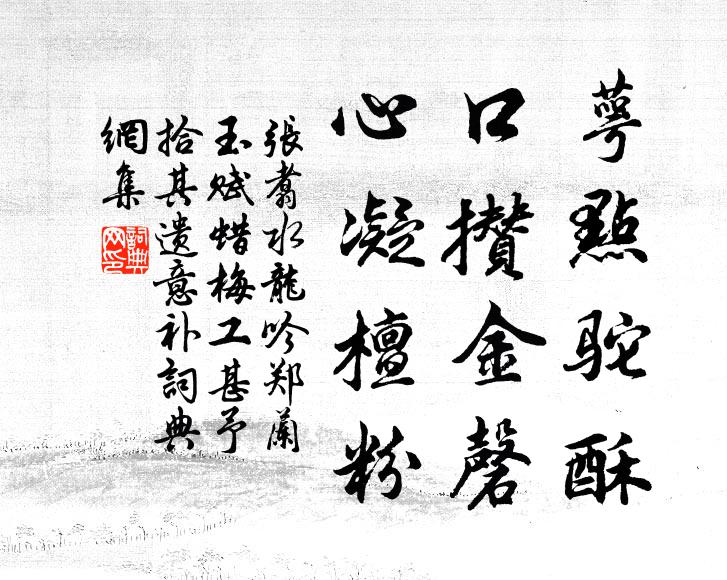 萼點駝酥
口攢金磬
心凝檀粉
張翥水龍吟郑蘭
玉赋蜡梅工甚予
拾其遗意补詞典
網集
詞典網印